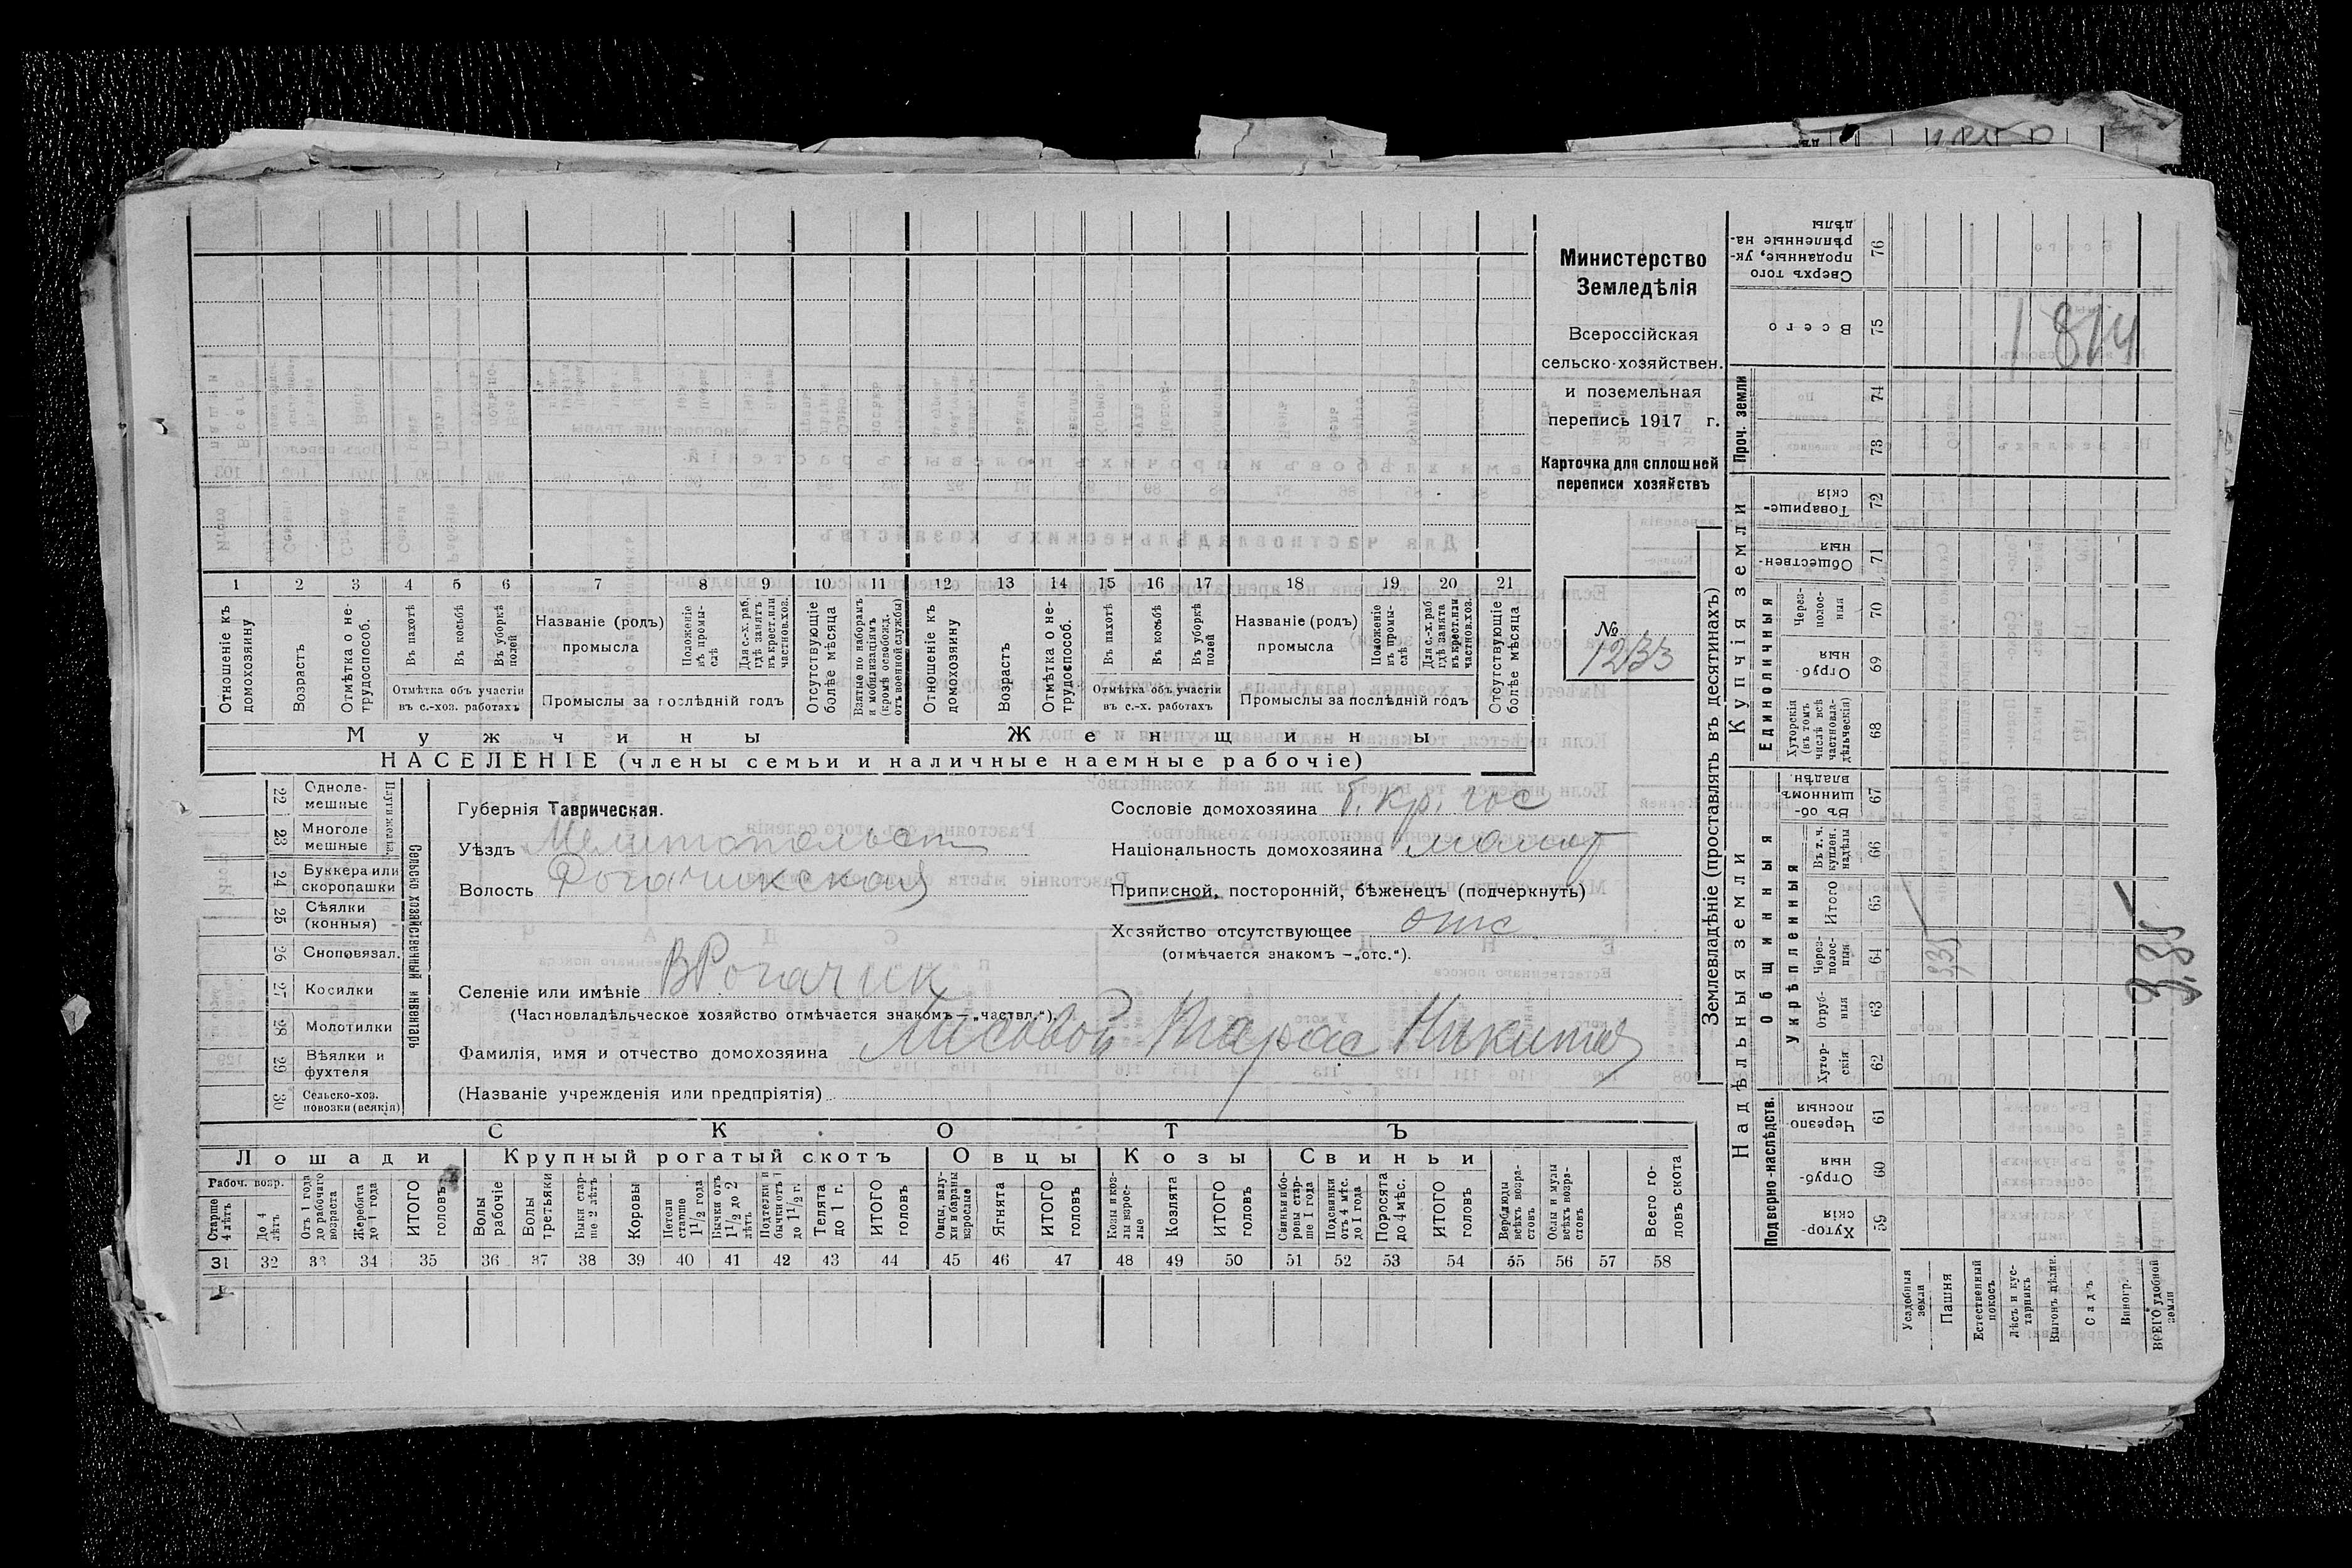 Министерство
Земледѣлія
Всероссійская
сельско-хозяйствен.
и поземельная
перепись 1917 г.
Карточка для сплошней
переписи хозяйствъ
№
1233
1 2 3 4 5 6 7 8 9 10 11 12 13 14 15 16 17 18 19 20 21
Отношеніе къ домохозяину
Возрастъ
Отмѣтка о не-трудоспособ.
Въ пахотѣ
Въ косьбѣ
Въ уборкѣ полей
Отмѣтка объ участіи въ с.-хоз. работахъ
Названіе (родъ) промысла
Положеніе въ промы-слѣ
Для с.-х. раб. гдѣ занятъ въ крест. или частнов. хоз.
Промыслы за послѣдній годъ
Отсутствующіе болѣе мѣсяца
Взятые по наборамъ и мобилизаціямъ (кромѣ освобожд. отъ военной службы)
Отношеніе къ домохозяину
Возрастъ
Отмѣтка о не-трудоспособ.
Въ пахотѣ
Въ косьбѣ
Въ уборкѣ полей
Отмѣтка объ участіи въ с.-х. работахъ
Названіе (родъ) промысла
Положеніе въ промы-слѣ
Для с.-х. раб. гдѣ занята въ крест. или частнов. хоз.
Промыслы за послѣдній годъ
Отсутствующіе болѣе мѣсяца
Мужчины Женщины
НАСЕЛЕНІЕ (члены семьи и наличные наемные рабочіе)
22 Одноле-мешные
23 Многоле мешные
24 Буккера или скоропашки
25 Сѣялки (конныя)
26 Сноповязал.
27 Косилки
28 Молотилки
29 Вѣялки и фухтеля
30 Сельско-хоз. повозки (всякія)
Сельско хозяйственный инвентарь
Губернія Таврическая.
Уѣздъ
Волость Рогачикская
Селеніе или имѣніе В Рогачик
(Частновладѣльческое хозяйство отмѣчается знакомъ — „частвл.“).
Фамилія, имя и отчество домохозяина Лисовой Тарас
(Названіе учрежденія или предпріятія)
Сословіе домохозяина б. кр. гос
Національность домохозяина
Приписной, посторонній, бѣженецъ (подчеркнуть)
Хозяйство отсутствующее отс
(отмѣчается знакомъ — „отс.“).
СКОТЪ
Лошади Крупный рогатый скотъ Овцы Козы Свиньи
Рабоч. возр.
Старше 4 лѣтъ
До 4 лѣтъ
Отъ 1 года до рабочаго возраста
Жеребята до 1 года
ИТОГО головъ
Волы рабочіе
Волы третьяки
Быки стар-ше 2 лѣтъ
Коровы
Нетели старше 1 1/2 года
Бычки отъ 1 1/2 до 2 лѣтъ
Подтелки и бычки отъ 1 до 1 1/2 г.
Телята до 1 г.
ИТОГО головъ
Овцы, валу-хи и бараны взрослые
Ягнята
ИТОГО головъ
Козы и коз-лы взрос-лые
Козлята
ИТОГО головъ
Свиньи и бо-ровы стар-ше 1 года
Подсвинки отъ 4 мѣс. до 1 года
Поросята до 4 мѣс.
ИТОГО головъ
Верблюды всѣхъ возра-стовъ
Ослы и мулы всѣхъ возра-стовъ
Всего го-ловъ скота
31 32 33 34 35 36 37 38 39 40 41 42 43 44 45 46 47 48 49 50 51 52 53 54 55 56 57 58
Землевладѣніе (проставлять въ десятинахъ)
Надѣльныя земли Купчія земли Проч. земли
Подворно-наслѣдств.
Общинныя
Укрѣпленныя
Единоличныя
Хутор-скія 59
Отруб-ныя 60
Черезпо лосныя 61
Хутор-скія 62
Отруб-ныя 63
Черезпо-лосныя 64
Итого 65
Въ т. ч. куплен. надѣлы 66
Въ об-щинномъ владѣн. 67
Хуторскія (въ томъ числѣ всѣ частновла-дѣльческія) 68
Отруб-ныя 69
Через-полос-ныя 70
Обществен-ныя 71
Товарище-скія 72
73
74
Всего 75
Сверхъ того проданные, ук-рѣпленные на-дѣлы 76
Усадебныя земли
Пашня
Естественный покосъ
Лѣсъ и кус-тарникъ
Выгонъ цѣлин.
Садъ
Виногр.
ВСЕГО удобной земли
1814